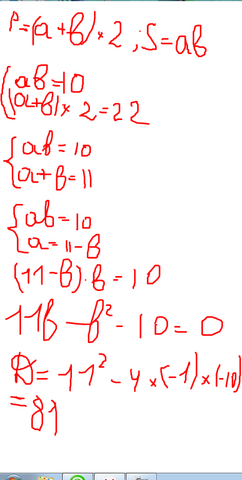 P=(a+b)×2; S=ab
{ab=10
(a+b)×2=22
{ab=10
a+b=11
{ab=10
a=11-b
(11-b)·b=10
11b-b²-10=0
D=11²-4×(-1)×(-10)
=81